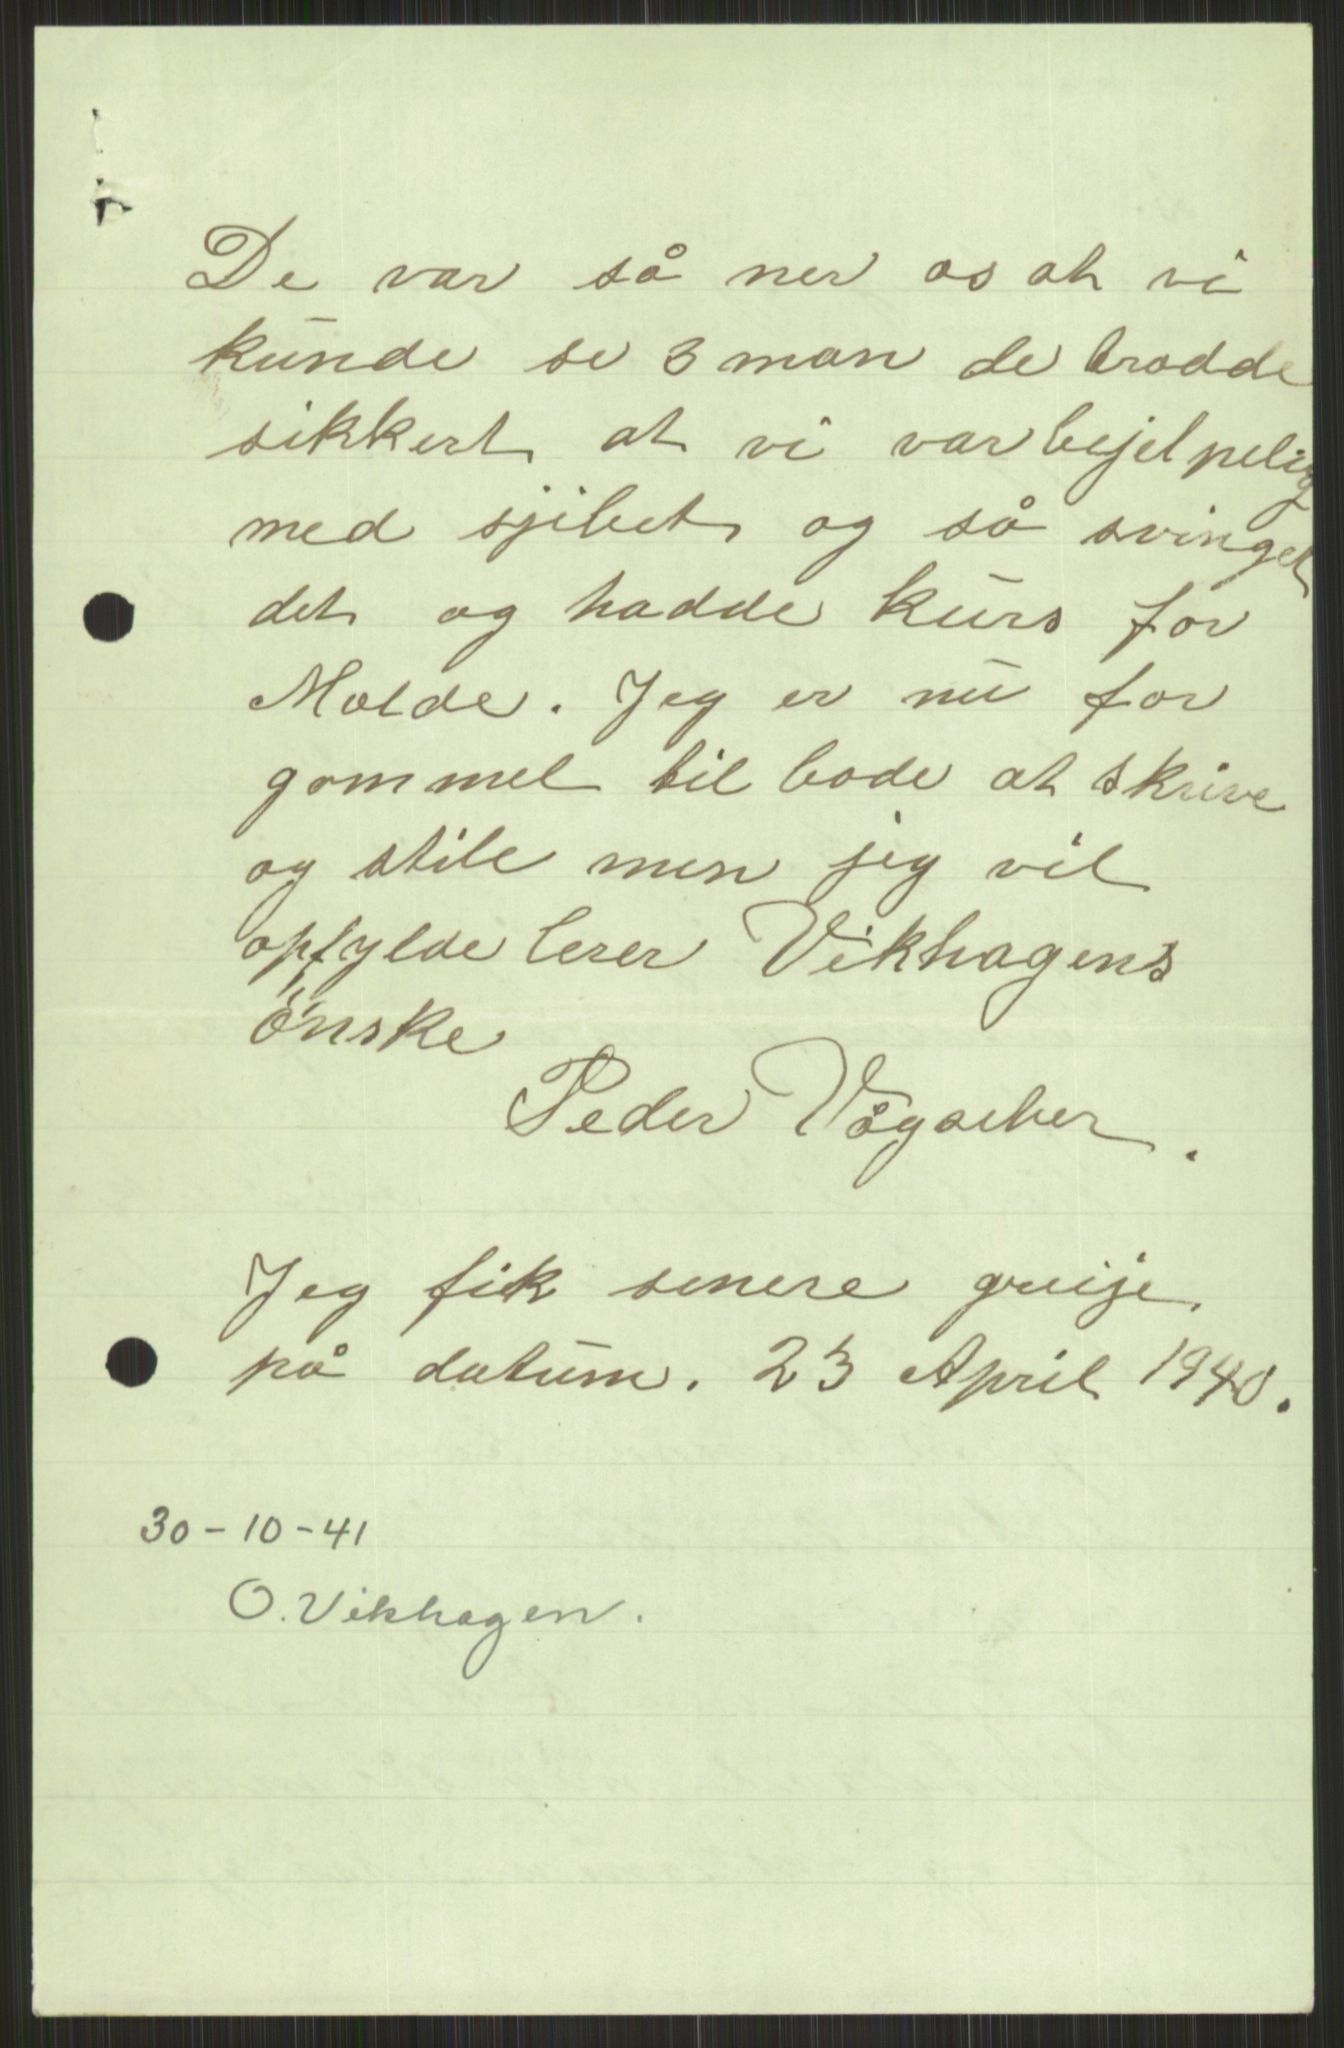 De var så ner os at vi
kunde se 3 man de trodde
sikkert at vi var bejelpelig
med sjibet og så svinget
det og hadde kurs for
Molde. Jeg er nu for
gammel til bode at skrive
og stile men jeg vil
opfylde lerer Vikhagens
önske
Peder Vågseter.
Jeg fik senere greije
på datum. 23 April 1940.
30-10-41
O. Vikhagen.